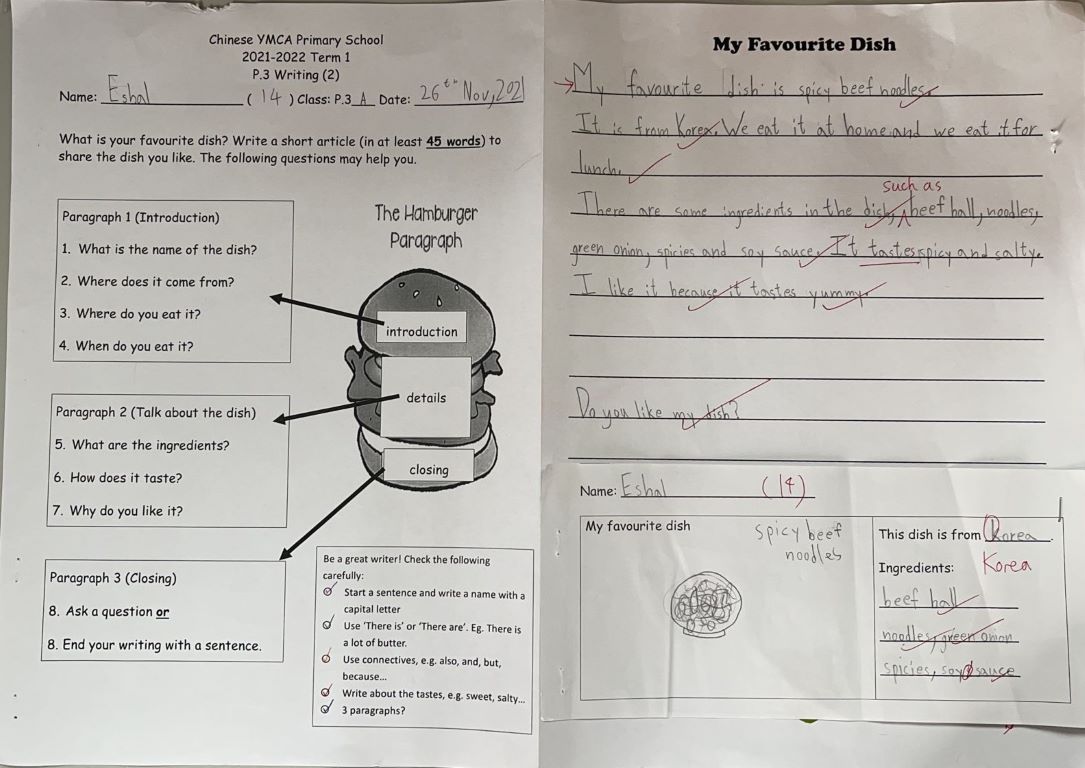 Chinese YMCA Primary School
2021-2022 Term 1
P.3 Writing (2)
Name: Eshal (14) Class: P.3 A Date: 26th Nov, 2021
What is your favourite dish? Write a short article (in at least 45 words) to
share the dish you like. The following questions may help you.
Paragraph 1 (Introduction)
1. What is the name of the dish?
2. Where does it come from?
3. Where do you eat it?
4. When do you eat it?
Paragraph 2 (Talk about the dish)
5. What are the ingredients?
6. How does it taste?
7. Why do you like it?
Paragraph 3 (Closing)
8. Ask a question or
8. End your writing with a sentence.
The Hamburger
Paragraph
introduction
details
closing
Be a great writer! Check the following
carefully:
Start a sentence and write a name with a
capital letter
Use 'There is' or 'There are'. Eg. There is
a lot of butter.
Use connectives, e.g. also, and, but,
because...
Write about the tastes, e.g. sweet, salty...
3 paragraphs?
My Favourite Dish
My favourite dish is spicy beef noodles.
It is from Korea. We eat it at home and we eat it for
lunch.
such as
There are some ingredients in the dish, beef ball, noodles,
green onion, spicies and soy sauce. It tastes spicy and salty.
I like it because it tastes yummy.
Do you like my dish?
Name: Eshal (14)
My favourite dish
spicy beef
noodles
This dish is from Korea.
Korea
Ingredients:
beef ball
noodles, green onion
spicies, soy sauce